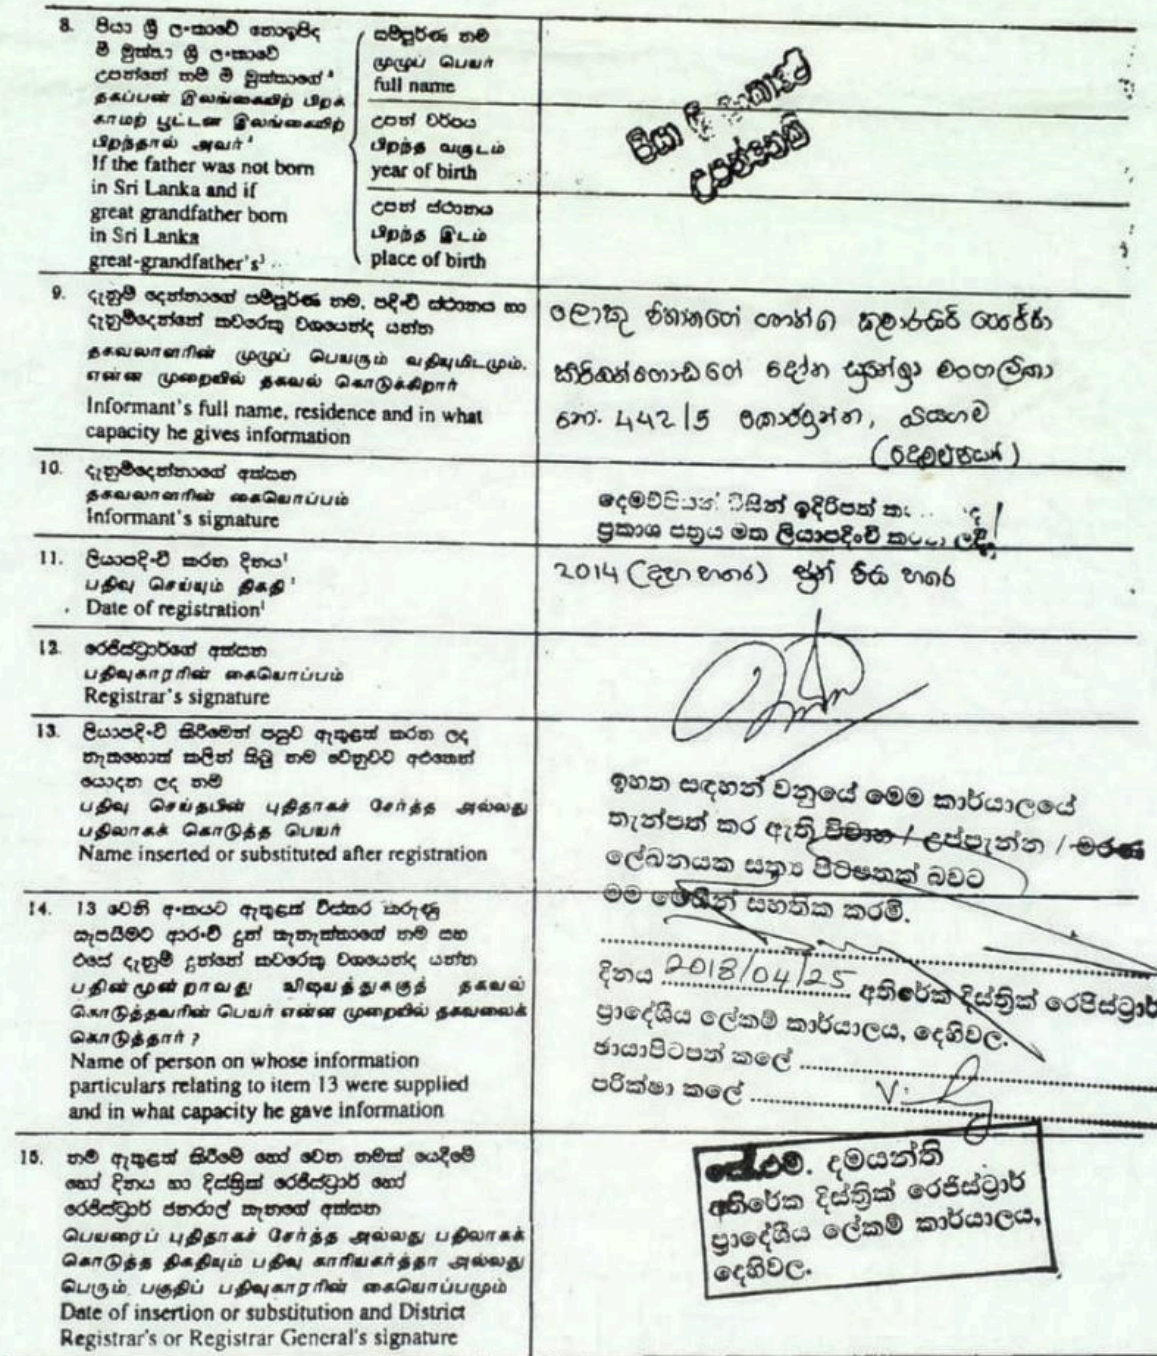 8. පියා ශ්‍රී ලංකාවේ නොඉපිද
මී මුත්තා ශ්‍රී ලංකාවේ
උපන්නේ නම් මී මුත්තාගේ³
தகப்பன் இலங்கையிற் பிறக்
காமற் பூட்டன் இலங்கையிற்
பிறந்தால் அவர்³
If the father was not born
in Sri Lanka and if
great grandfather born
in Sri Lanka
great-grandfather's³ ..
සම්පූර්ණ නම
முழுப் பெயர்
full name
උපන් වර්ෂය
பிறந்த வருடம்
year of birth
උපන් ස්ථානය
பிறந்த இடம்
place of birth
පියා ශ්‍රී ලංකාවේ
උපන්නෙකි
9. දැනුම් දෙන්නාගේ සම්පූර්ණ නම, පදිංචි ස්ථානය හා
දැනුම්දෙන්නේ කවරෙකු වශයෙන්ද යන්න
தகவலாளரின் முழுப் பெயரும் வதியுமிடமும்.
என்ன முறையில் தகவல் கொடுக்கிறார்
Informant's full name, residence and in what
capacity he gives information
ලොකු කුමාරසිරි පෙරේරා
දෝන මංගලිකා
නො. 442/5 බියගම
(දෙමව්පියන්)
10. දැනුම්දෙන්නාගේ අත්සන
தகவலாளரின் கையொப்பம்
Informant's signature
දෙමව්පියන් විසින් ඉදිරිපත් ක
ප්‍රකාශ පත්‍රය මත ලියාපදිංචි කරන ලදී.
11. ලියාපදිංචි කරන දිනය¹
பதிவு செய்யும் திகதி¹
Date of registration¹
2014 (දහහතර) ජුනි විසි හතර
12. රෙජිස්ට්‍රාර්ගේ අත්සන
பதிவுகாரரின் கையொப்பம்
Registrar's signature
13. ලියාපදිංචි කිරීමෙන් පසුව ඇතුළත් කරන ලද
නැතහොත් කලින් තිබූ නම වෙනුවට අළුතෙන්
යොදන ලද නම
பதிவு செய்தபின் புதிதாகச் சேர்த்த அல்லது
பதிலாகக் கொடுத்த பெயர்
Name inserted or substituted after registration
ඉහත සඳහන් වනුයේ මෙම කාර්යාලයේ
තැන්පත් කර ඇති විවාහ / උප්පැන්න / මරණ
ලේඛනයක සත්‍ය පිටපතක් බවට
මම මෙයින් සහතික කරමි.
14. 13 වෙනි අංකයට ඇතුළත් විස්තර කරුණු
සැපයීමට ආරංචි දුන් තැනැත්තාගේ නම සහ
එසේ දැනුම් දුන්නේ කවරෙකු වශයෙන්ද යන්න
பதின்மூன்றாவது விஷயத்துக்குத் தகவல்
கொடுத்தவரின் பெயர் என்ன முறையில் தகவலைக்
கொடுத்தார் ?
Name of person on whose information
particulars relating to item 13 were supplied
and in what capacity he gave information
දිනය 2018/04/25 අතිරේක දිස්ත්‍රික් රෙජිස්ට්‍රාර්
ප්‍රාදේශීය ලේකම් කාර්යාලය, දෙහිවල.
ඡායාපිටපත් කලේ
පරික්ෂා කලේ
15. නම ඇතුළත් කිරීමේ හෝ වෙන නමක් යෙදීමේ
හෝ දිනය හා දිස්ත්‍රික් රෙජිස්ට්‍රාර් හෝ
රෙජිස්ට්‍රාර් ජනරාල් තැනගේ අත්සන
பெயரைப் புதிதாகச் சேர்த்த அல்லது பதிலாகக்
கொடுத்த திகதியும் பதிவு காரியகர்த்தா அல்லது
பெரும் பகுதிப் பதிவுகாரரின் கையொப்பமும்
Date of insertion or substitution and District
Registrar's or Registrar General's signature
එම්. දමයන්ති
අතිරේක දිස්ත්‍රික් රෙජිස්ට්‍රාර්
ප්‍රාදේශීය ලේකම් කාර්යාලය,
දෙහිවල.